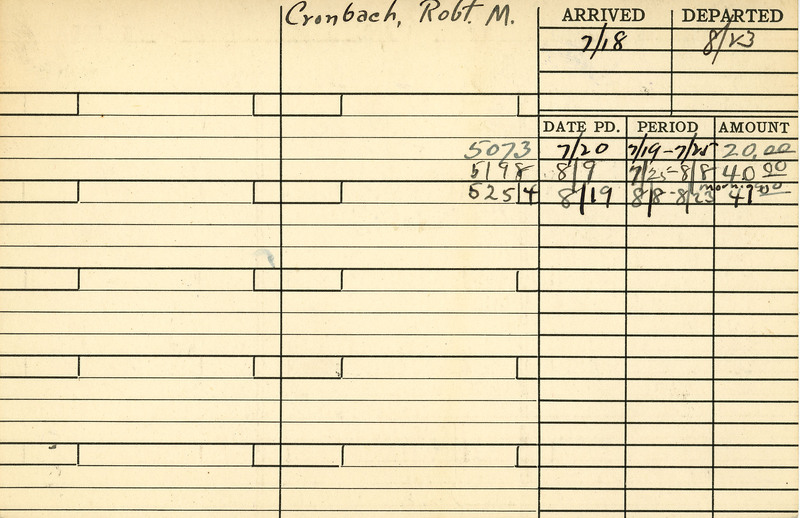 Cronbach, Robt. M.
ARRIVED DEPARTED
7/18 8/23
DATE PD. PERIOD AMOUNT
5073 7/20 7/19-7/25 20.00
5198 8/9 7/25-8/8 40.00
5254 8/19 8/8-8/23 41.00